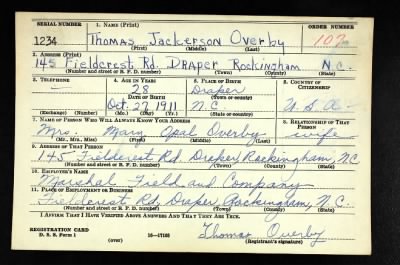 SERIAL NUMBER 1. NAME (Print) ORDER NUMBER
1234 Thomas Jackerson Overby 107
(First) (Middle) (Last)
2. ADDRESS (Print)
145 Fieldcrest Rd. DRAPER Rockingham N.C.
(Number and street or R. F. D. number) (Town) (County) (State)
3. TELEPHONE 4. AGE IN YEARS 5. PLACE OF BIRTH 6. COUNTRY OF CITIZENSHIP
— 28 Draper
DATE OF BIRTH (Town or county)
Oct. 27 1911 N.C. U.S.A.
(Exchange) (Number) (Mo.) (Day) (Yr.) (State or country)
7. NAME OF PERSON WHO WILL ALWAYS KNOW YOUR ADDRESS 8. RELATIONSHIP OF THAT PERSON
Mrs. Mary Opal Overby wife
(Mr., Mrs., Miss) (First) (Middle) (Last)
9. ADDRESS OF THAT PERSON
145 Fieldcrest Rd Draper Rockingham, N.C.
(Number and street or R. F. D. number) (Town) (County) (State)
10. EMPLOYER'S NAME
Marshal Field and Company
11. PLACE OF EMPLOYMENT OR BUSINESS
Fieldcrest Rd, Draper, Rockingham, N.C.
(Number and street or R. F. D. number) (Town) (County) (State)
I AFFIRM THAT I HAVE VERIFIED ABOVE ANSWERS AND THAT THEY ARE TRUE.
REGISTRATION CARD
D. S. S. Form 1 16—17105 Thomas Overby
(over) (Registrant's signature)